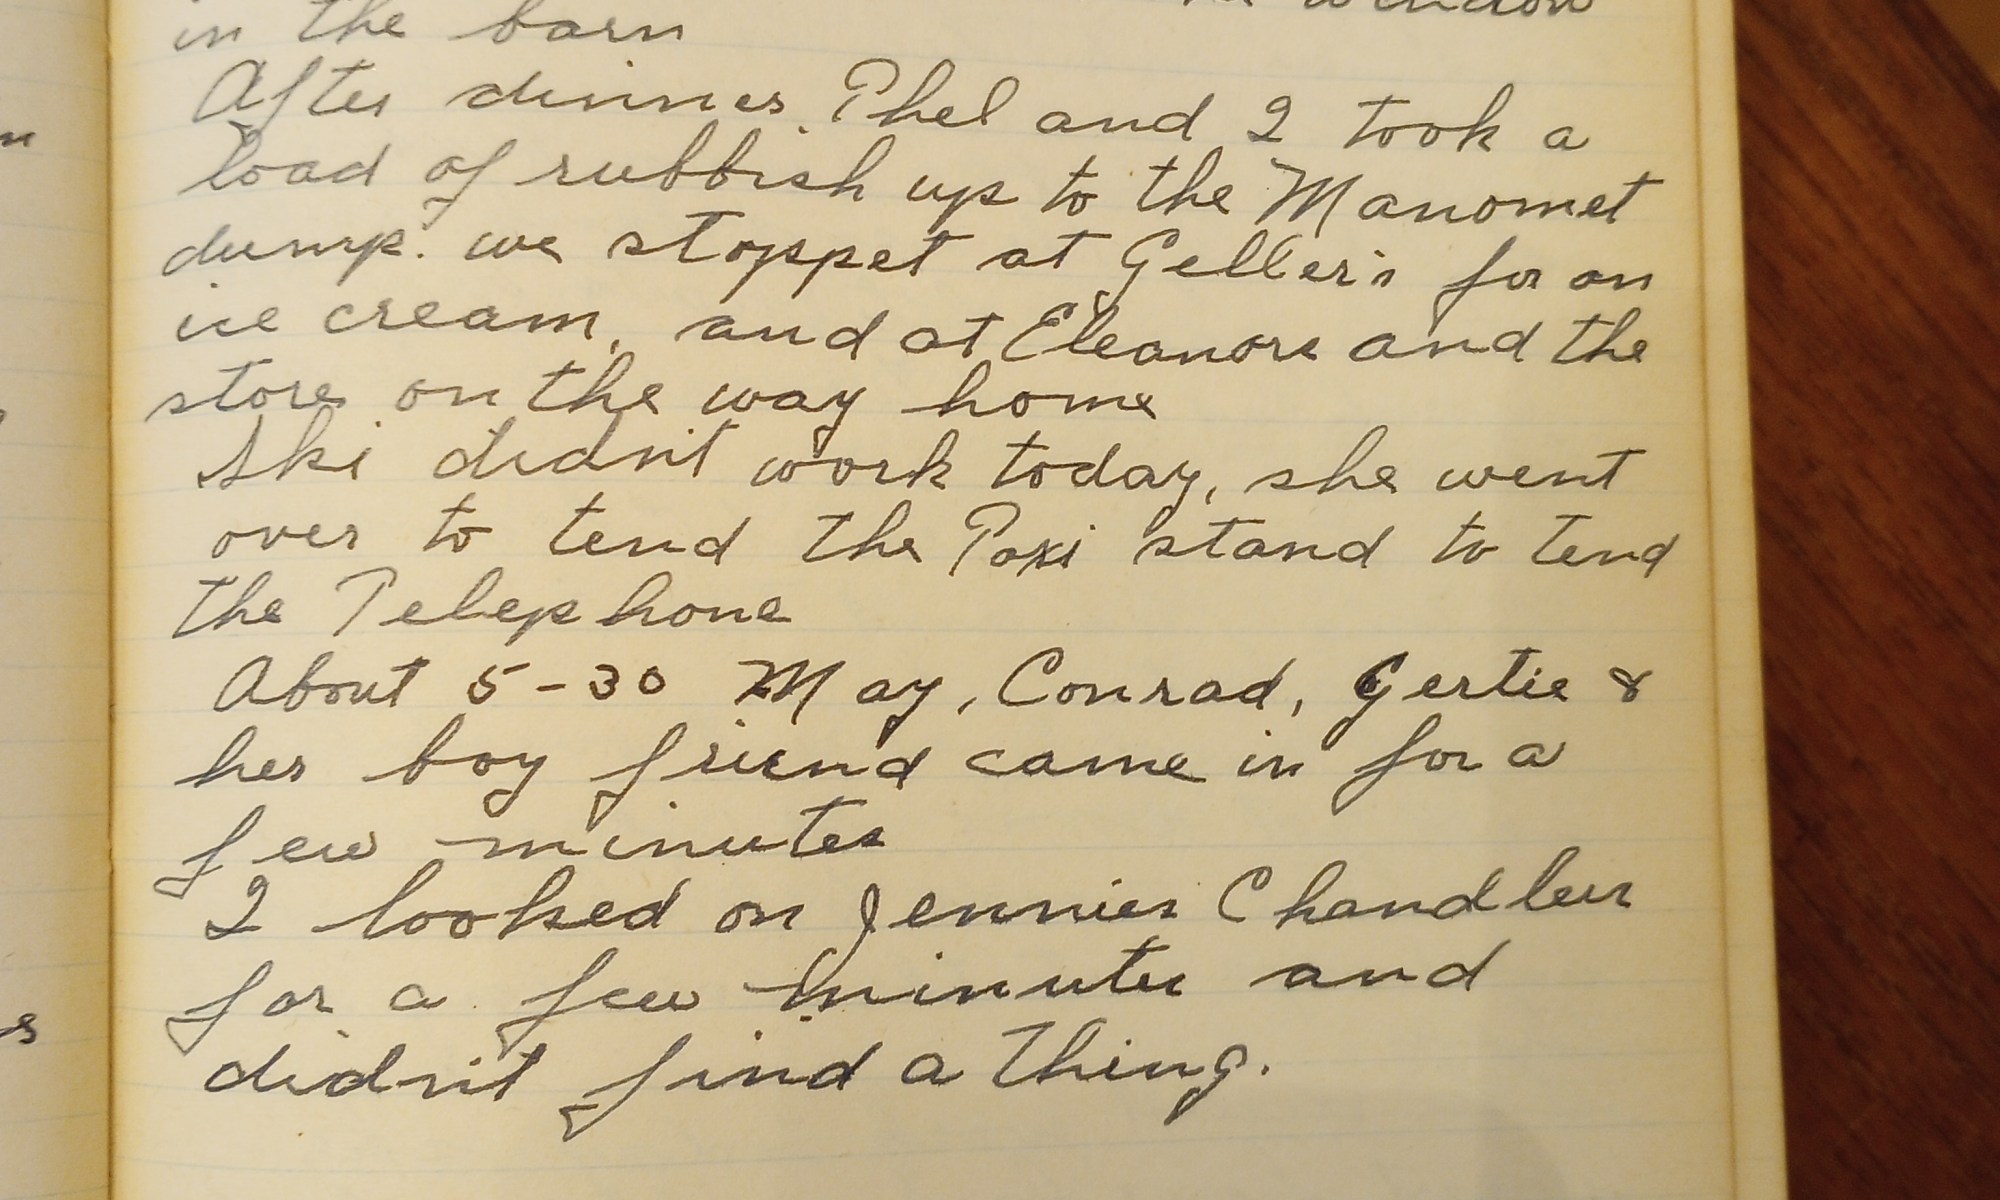 window
in the barn
After dinner, Phel and I took a
load of rubbish up to the Manomet
dump. we stoppet at Geller's for an
ice cream, and at Eleanors and the
store on the way home
Ski didn't work today, she went
over to tend the Taxi stand to tend
the Telephone
About 5-30 May, Conrad, Gertie &
her boy friend came in for a
few minutes
I looked on Jennies Chandlers
for a few minutes and
didn't find a thing.